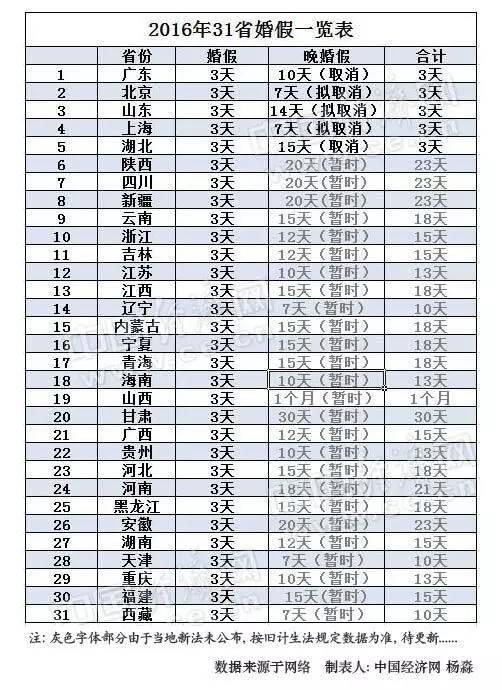 2016年31省婚假一览表
省份 婚假 晚婚假 合计
1 广东 3天 10天（取消） 3天
2 北京 3天 7天（拟取消） 3天
3 山东 3天 14天（拟取消） 3天
4 上海 3天 7天（拟取消） 3天
5 湖北 3天 15天（取消） 3天
6 陕西 3天 20天(暂时） 23天
7 四川 3天 20天(暂时） 23天
8 新疆 3天 20天(暂时） 23天
9 云南 3天 15天（暂时） 18天
10 浙江 3天 12天（暂时） 15天
11 吉林 3天 12天（暂时） 15天
12 江苏 3天 10天（暂时） 13天
13 江西 3天 15天（暂时） 18天
14 辽宁 3天 7天（暂时） 10天
15 内蒙古 3天 15天（暂时） 18天
16 宁夏 3天 15天（暂时） 18天
17 青海 3天 15天（暂时） 18天
18 海南 3天 10天（暂时） 13天
19 山西 3天 1个月（暂时） 1个月
20 甘肃 3天 30天（暂时） 30天
21 广西 3天 12天（暂时） 15天
22 贵州 3天 10天（暂时） 13天
23 河北 3天 15天（暂时） 18天
24 河南 3天 18天（暂时） 21天
25 黑龙江 3天 15天（暂时） 18天
26 安徽 3天 20天（暂时） 23天
27 湖南 3天 12天（暂时） 15天
28 天津 3天 7天（暂时） 10天
29 重庆 3天 10天（暂时） 13天
30 福建 3天 15天(暂时） 15天
31 西藏 3天 7天（暂时） 10天
注: 灰色字体部分由于当地新法未公布，按旧计生法规定数据为准，待更新......
数据来源于网络 制表人: 中国经济网 杨淼